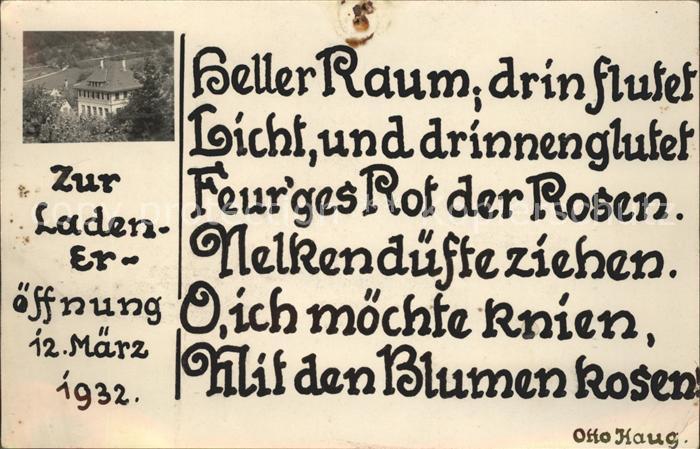 Heller Raum; drin flutet
Licht, und drinnen glutet
Feur'ges Rot der Rosen.
Nelkendüfte ziehen.
O, ich möchte knien,
Mit den Blumen kosen!
Otto Haug.
Zur
Laden-
Er-
öffnung
12. März
1932.
copy protection © Kopierschutz